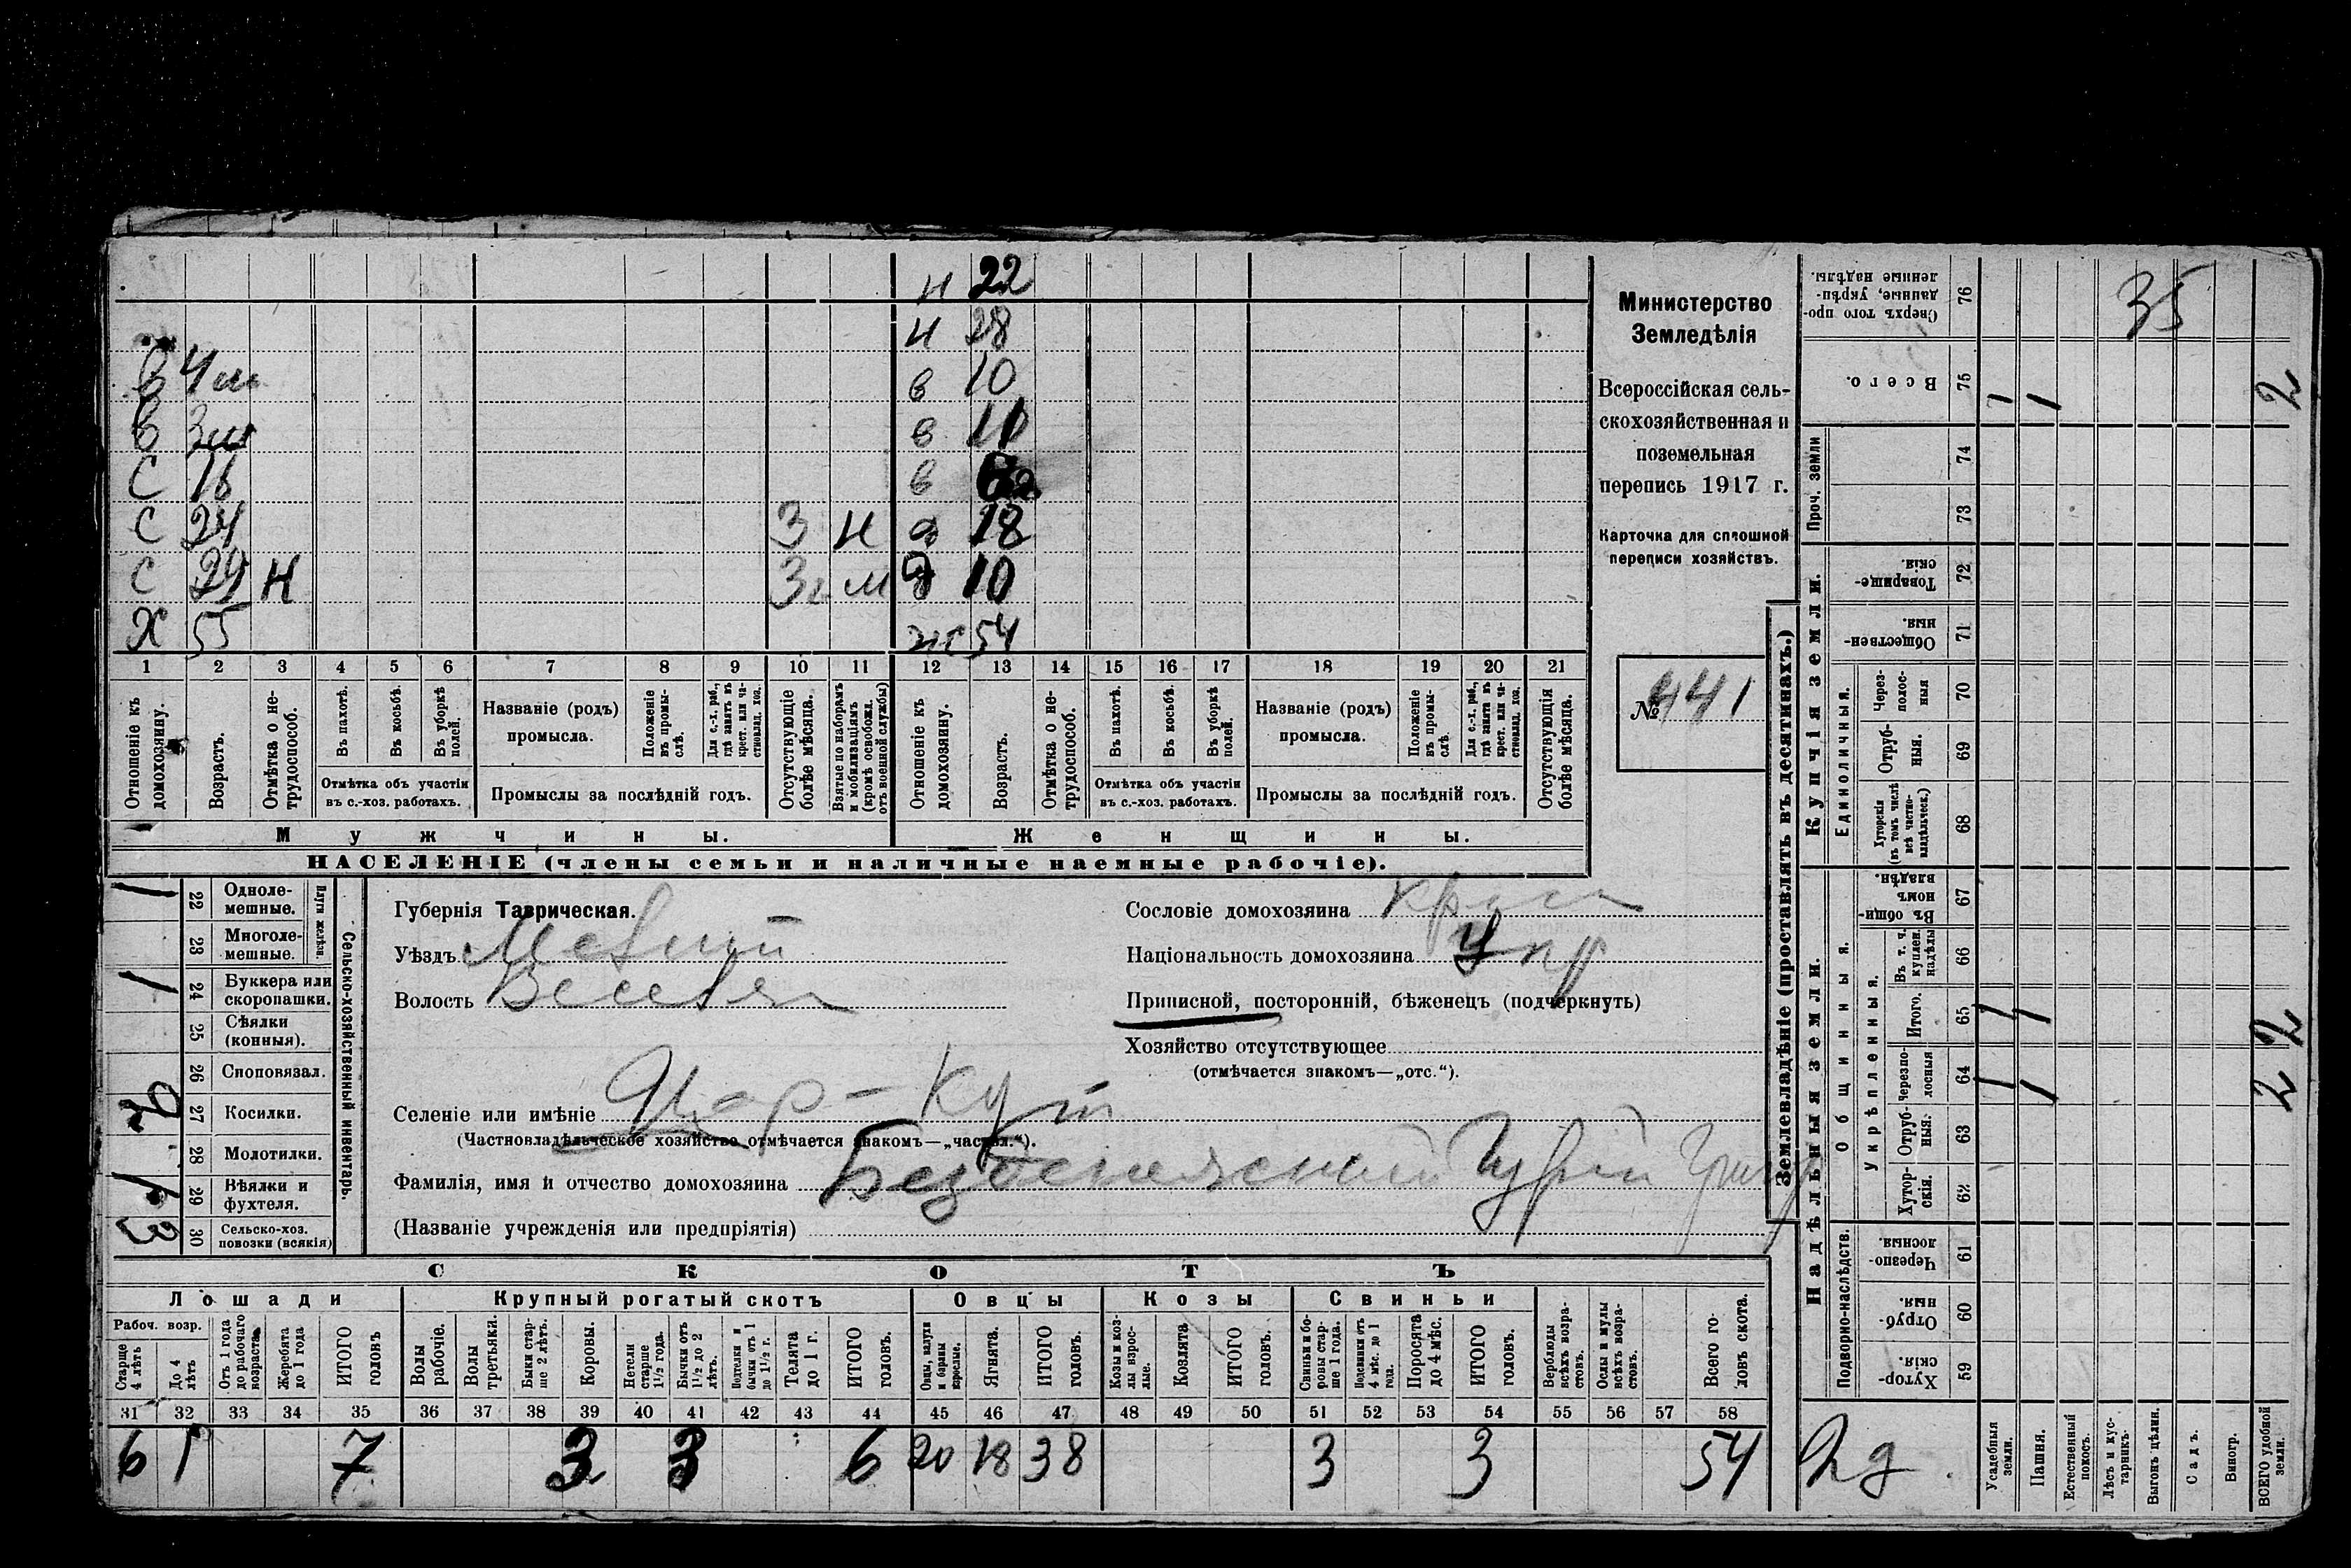 н 22
н 28
в 4 м в 10
в 3 м в 11
с 16 в
с 24 3 н д 18
с 29 н 3 г м д 10
х 55 ж 54
1 2 3 4 5 6 7 8 9 10 11 12 13 14 15 16 17 18 19 20 21
Отношеніе къ домохозяину.
Возрастъ.
Отмѣтка о не-трудоспособ.
Въ пахотѣ.
Въ косьбѣ.
Въ уборкѣ полей.
Отмѣтка объ участіи въ с.-хоз. работахъ.
Названіе (родъ) промысла.
Положеніе въ промы-слѣ.
Для с.-х. раб., гдѣ занятъ въ крест. или ча-стновлад. хоз.
Промыслы за послѣдній годъ.
Отсутствующіе болѣе мѣсяца.
Взятые по наборамъ и мобилизаціямъ (кромѣ освобожд. отъ военной службы)
Отношеніе къ домохозяину.
Возрастъ.
Отмѣтка о не-трудоспособ.
Въ пахотѣ.
Въ косьбѣ.
Въ уборкѣ полей.
Отмѣтка объ участіи въ с.-хоз. работахъ.
Названіе (родъ) промысла.
Положеніе въ промы-слѣ.
Для с.-х. раб., гдѣ занята въ крест. или ча-стновлад. хоз.
Промыслы за послѣдній годъ.
Отсутствующія болѣе мѣсяца.
Мужчины.
Женщины.
НАСЕЛЕНІЕ (члены семьи и наличные наемные рабочіе).
Министерство
Земледѣлія
Всероссійская сель-
скохозяйственная и
поземельная
перепись 1917 г.
Карточка для сплошной
переписи хозяйствъ.
№ 441
Сельско-хозяйственный инвентарь.
Плуги желѣзн.
1 22 Одноле-мешные.
23 Многоле-мешные.
1 24 Буккера или скоропашки.
25 Сѣялки (конныя).
26 Сноповязал.
27 Косилки.
28 Молотилки.
1 29 Вѣялки и фухтеля.
3 30 Сельско-хоз. повозки (всякія)
Губернія Таврическая.
Уѣздъ
Волость
Сословіе домохозяина
Національность домохозяина Укр
Приписной, посторонній, бѣженецъ (подчеркнуть)
Хозяйство отсутствующее
(отмѣчается знакомъ—„отс.“).
Селеніе или имѣніе
(Частновладѣльческое хозяйство отмѣчается знакомъ—„частвл.“).
Фамилія, имя и отчество домохозяина Гурій Григор
(Названіе учрежденія или предпріятія)
СКОТЪ
Лошади
Крупный рогатый скотъ
Овцы
Козы
Свиньи
Рабоч. возр.
Старше 4 лѣтъ
До 4 лѣтъ
Отъ 1 года до рабочаго возраста.
Жеребята до 1 года
ИТОГО головъ
Волы рабочіе.
Волы третьяки.
Быки стар-ше 2 лѣтъ.
Коровы.
Нетели старше 1½ года.
Бычки отъ 1½ до 2 лѣтъ.
Подтелки и бычки отъ 1 до 1½ г.
Телята до 1 г.
ИТОГО головъ.
Овцы, валухи и бараны взрослые.
Ягнята.
ИТОГО головъ.
Козы и коз-лы взрос-лые.
Козлята
ИТОГО головъ.
Свиньи и бо-ровы стар-ше 1 года.
Подсвинки отъ 4 мѣс. до 1 года.
Поросята до 4 мѣс.
ИТОГО головъ.
Верблюды всѣхъ возра-стовъ.
Ослы и мулы всѣхъ возра-стовъ.
Всего го-ловъ скота.
31 32 33 34 35 36 37 38 39 40 41 42 43 44 45 46 47 48 49 50 51 52 53 54 55 56 57 58
6 1 7 3 3 6 20 18 38 3 3 54
Землевладѣніе (проставлять въ десятинахъ.)
Купчія земли.
Надѣльныя земли.
Проч. земли
Единоличныя.
Общинныя.
Укрѣпленныя.
Подворно-наслѣдств.
Сверхъ того про-данные, укрѣп-ленные надѣлы. 76 35
Всего. 75 1 1 2
74
73
Товарище-скія. 72
Обществен-ныя. 71
Через-полос-ныя 70
Отруб-ныя. 69
Хуторскія (въ томъ числѣ всѣ частно-владѣльческ.) 68
Въ общи-номъ владѣн. 67
Въ т. ч. куплен. надѣлы 66
Итого. 65 1 1 2
Черезпо-лосныя 64 1 1 2
Отруб-ныя. 63
Хутор-скія. 62
Черезпо-лосныя. 61
Отруб-ныя. 60
Хутор-скія. 59
Усадебныя земли.
Пашня.
Естественный покосъ.
Лѣсъ и кус-тарникъ.
Выгонъ цѣлин.
Садъ.
Виногр.
ВСЕГО удобной земли.